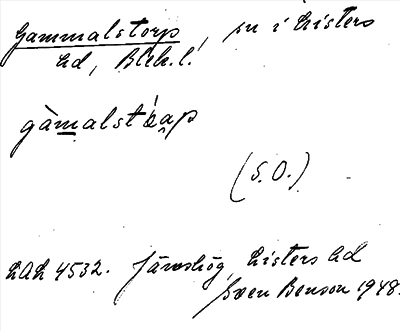 Gammalstorp, sn i Listers
hd, Blek. l.
gàmalstáap
(S.O.)
LAL 4532. Jämshög, Listers hd
Sven Benson 1948.